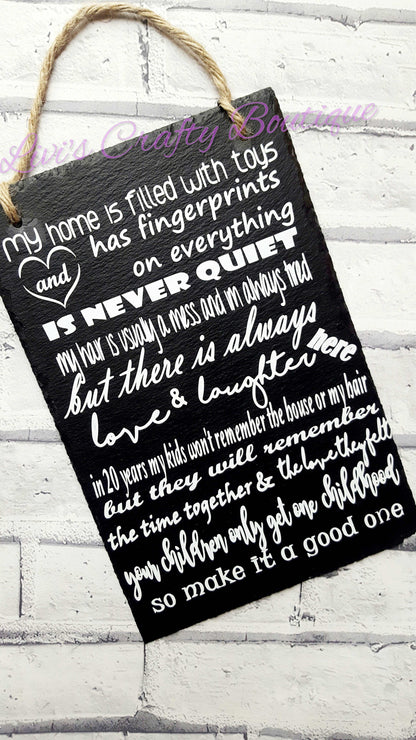 Livi's Crafty Boutique
my home is filled with toys
has fingerprints
and
on everything
IS NEVER QUIET
my hair is usually a mess and im always tired
but there is always
love & laughter here
in 20 years my kids won't remember the house or my hair
but they will remember
the time together & the love they felt
your children only get one childhood
so make it a good one